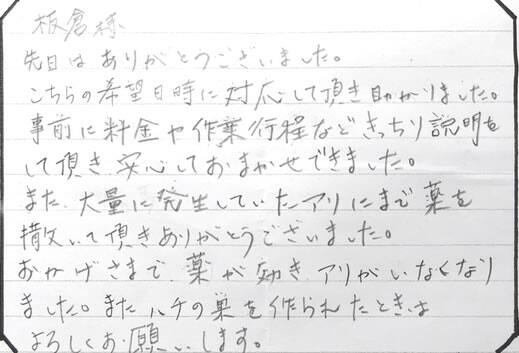 板倉様
先日はありがとうございました。
こちらの希望日時に対応して頂き助かりました。
事前に料金や作業行程などきっちり説明を
して頂き、安心しておまかせできました。
また、大量に発生していたアリにまで薬を
撒いて頂きありがとうございました。
おかげさまで、薬が効き、アリがいなくなり
ました。またハチの巣を作られたときは
よろしくお願いします。